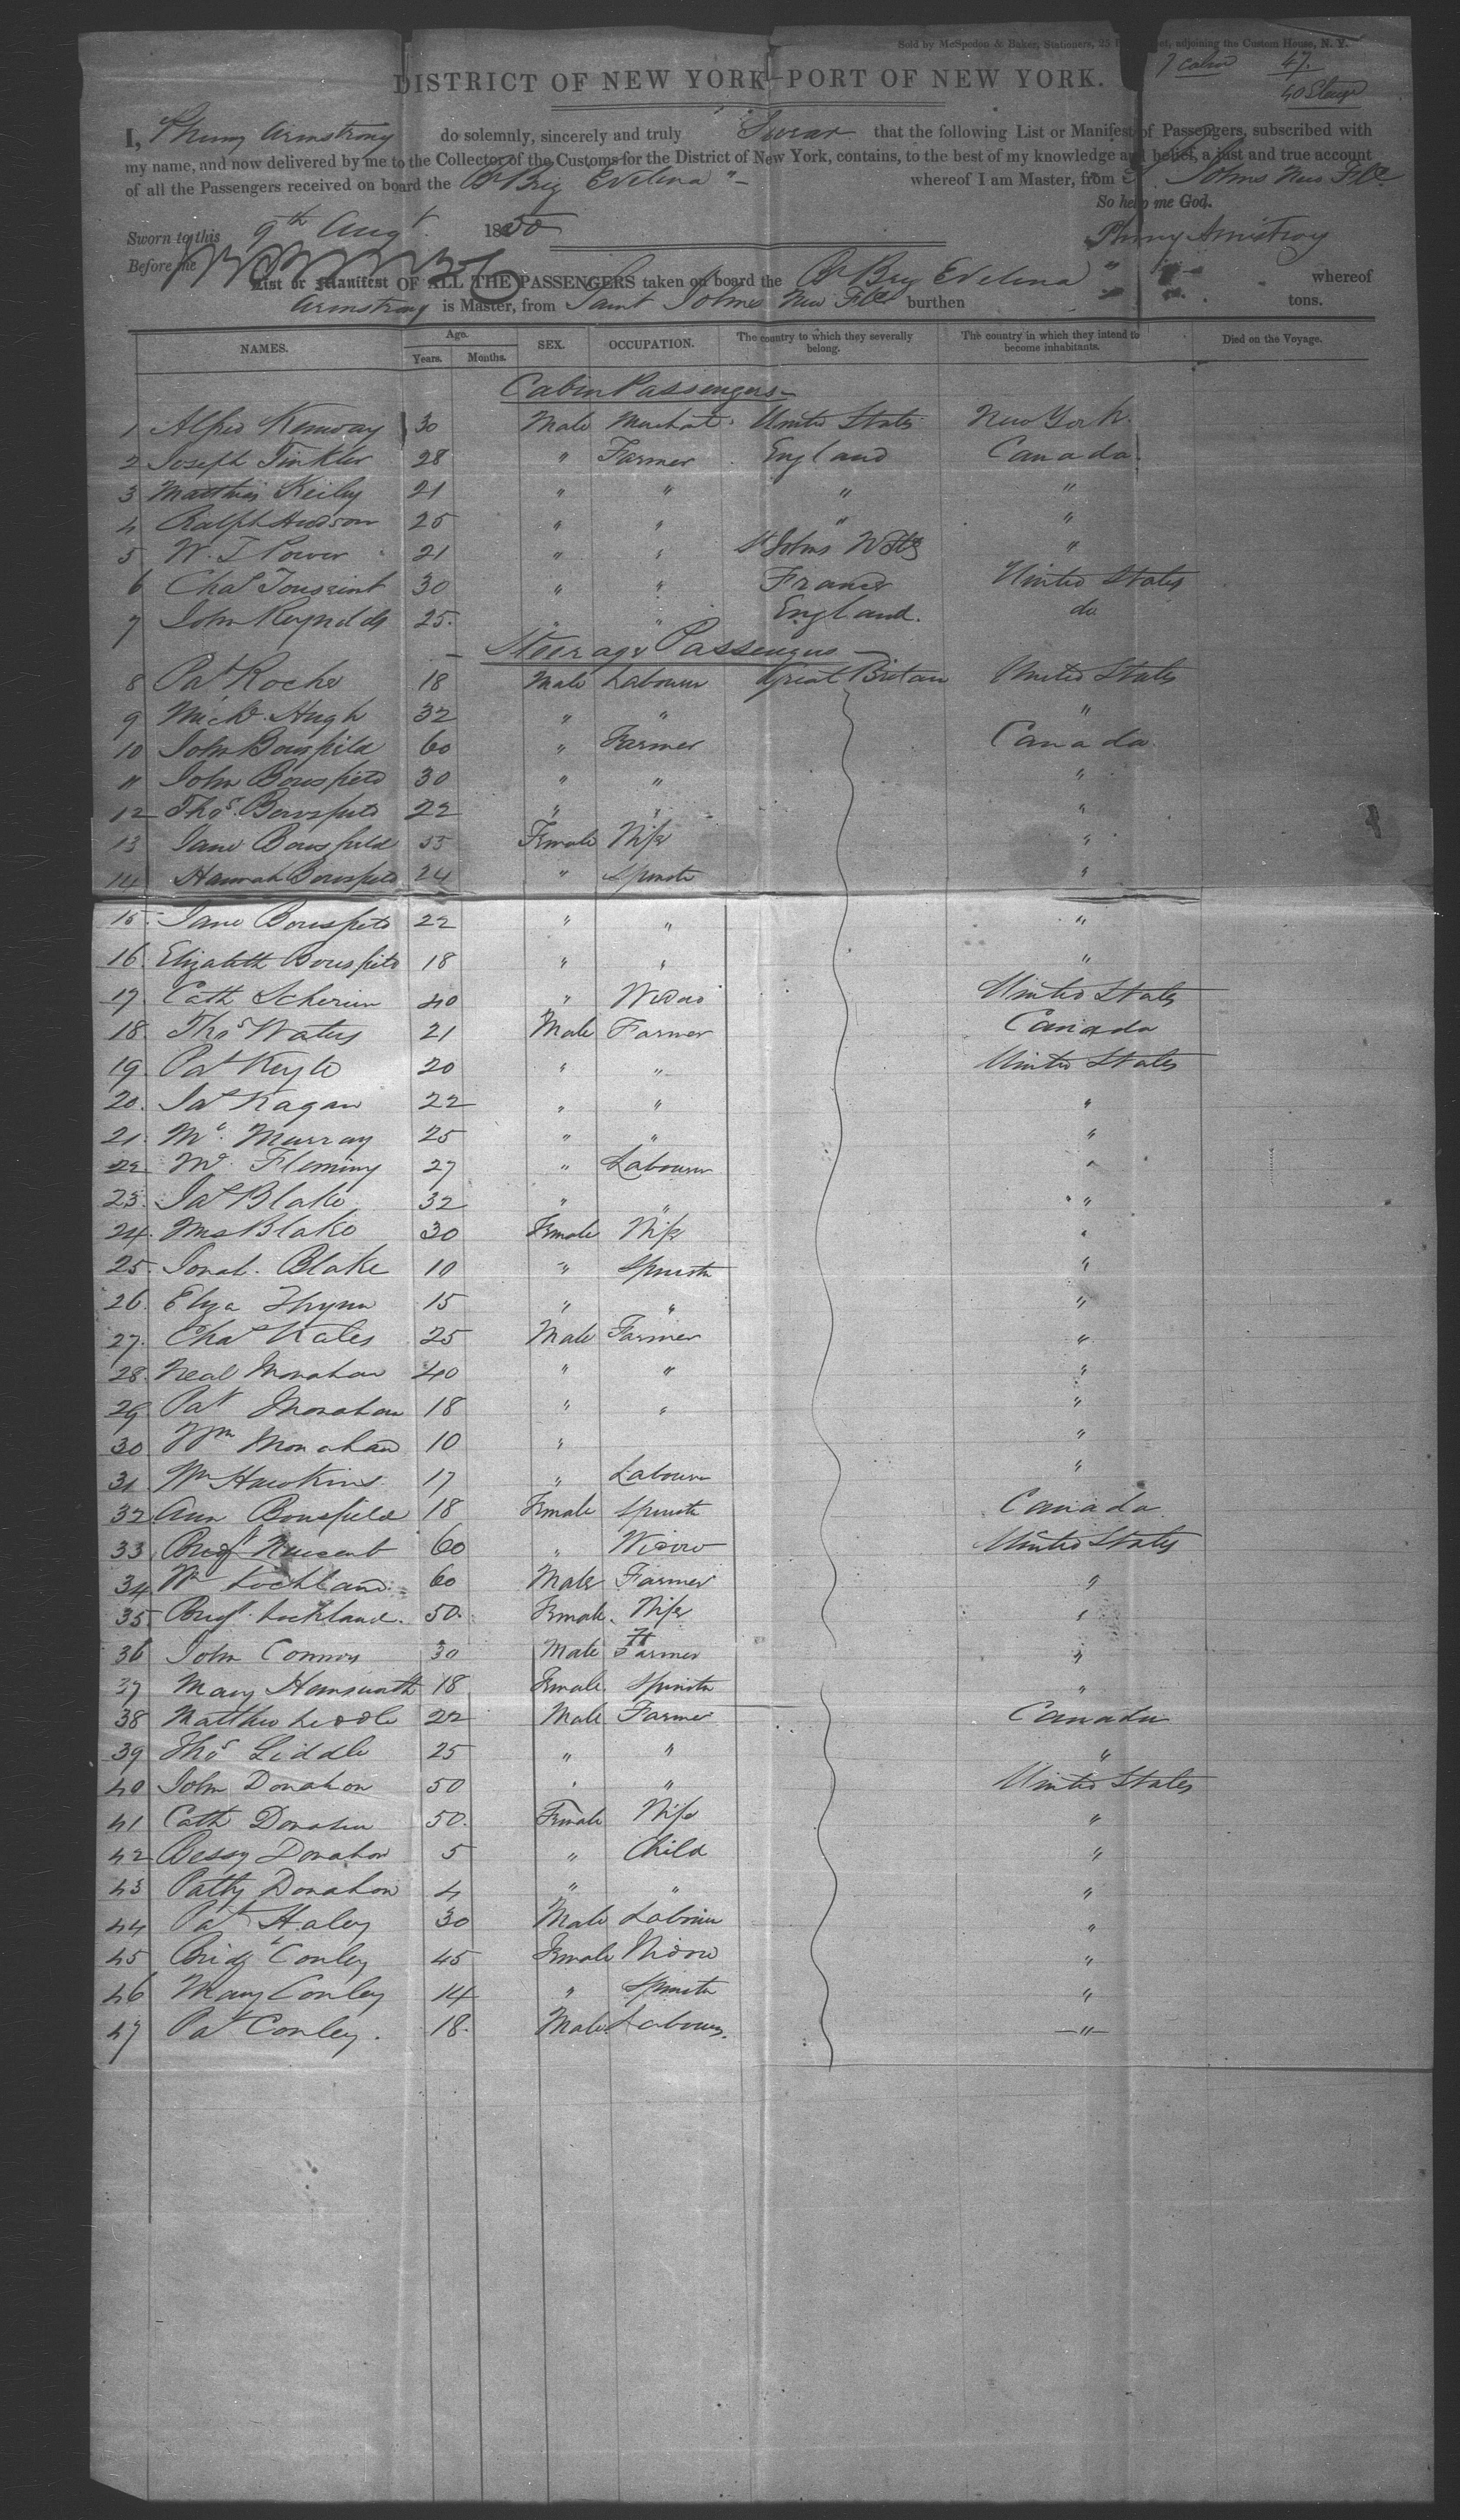 Sold by McSpedon & Baker, Stationers, 25 adjoining the Custom House, N. Y.
7 cabin 47.
40 Steage
DISTRICT OF NEW YORK—PORT OF NEW YORK.
I, Armstrong do solemnly, sincerely and truly Swear that the following List or Manifest of Passengers, subscribed with
my name, and now delivered by me to the Collector of the Customs for the District of New York, contains, to the best of my knowledge and belief, a just and true account
of all the Passengers received on board the Br Brig Evelina whereof I am Master, from St. Johns New Fld.
So help me God.
Sworn to this 9th Augt. 1850
Armstrong
Before me
List or Manifest OF ALL THE PASSENGERS taken on board the Br Brig Evelina " whereof
Armstrong is Master, from Saint Johns New Fld burthen tons.
NAMES. Age. Years. Months. SEX. OCCUPATION. The country to which they severally belong. The country in which they intend to become inhabitants. Died on the Voyage.
Cabin Passengers—
1 Alfred Kenway 30 Male Merchat. United States New York.
2 Joseph Tinkler 28 " Farmer England Canada.
3 Matthew Keiley 21 " " " "
4 Ralph Hudson 25 " " " "
5 W. T Power 21 " " St Johns "
6 Chas Toussaint 30 " " France United States
7 John Reynolds 25. " " England. do
— Steerage Passengers —
8 Pat Roche 18 Male Labourer Great Britain United States
9 Michl Hugh 32 " " "
10 John Bousfield 60 " Farmer Canada.
11 John Bousfield 30 " " "
12 Thos. Bousfield 22 " " "
13 Jane Bousfield 55 Female Wife "
14 Hannah Bousfield 24 " Spinster "
15. Jane Bousfield 22 " " "
16. Elizabeth Bousfield 18 " " "
17. Cath 40 " Widow United States
18. Thos Waters 21 Male Farmer Canada
19. Pat Keylo 20 " " United States
20. Jas Kagan 22 " " "
21. Mc. Murray 25 " " "
22 Fleming 27 " Labourer "
23. Jas Blake 32 " " "
24. Mrs Blake 30 Female Wife "
25. Blake 10 " Spinster "
26. Eliza 15 " " "
27. Chas Kates 25 Male Farmer "
28. Neal Monahan 40 " " "
29 Pat Monahan 18 " " "
30 Wm Monahan 10 " "
31 Wm Hawkins 17 " Labourer "
32 Ann Bousfield 18 Female Spinster Canada
33 Bridgt 60 " Widow United States
34 Wm Lockland 60 Male Farmer "
35 Brigt. Lockland. 50. Female. Wife "
36 John Connors 30 Male Farmer "
37 Mary Hemsworth 18 Female. Spinster "
38 Matthew Liddle 22 Male Farmer Canada
39 Thos Liddle 25 " " "
40 John Donahon 50 " " United States
41 Cath Donahon 50. Female Wife "
42 Bessy Donahon 5 " Child "
43 Patty Donahon 4 " " "
44 Pat Haley 30 Male Labourer "
45 Bridgt Conley 45 Female Widow "
46 Mary Conley 14 " Spinster "
47 Pat Conley. 18. Male Labourer. —"—